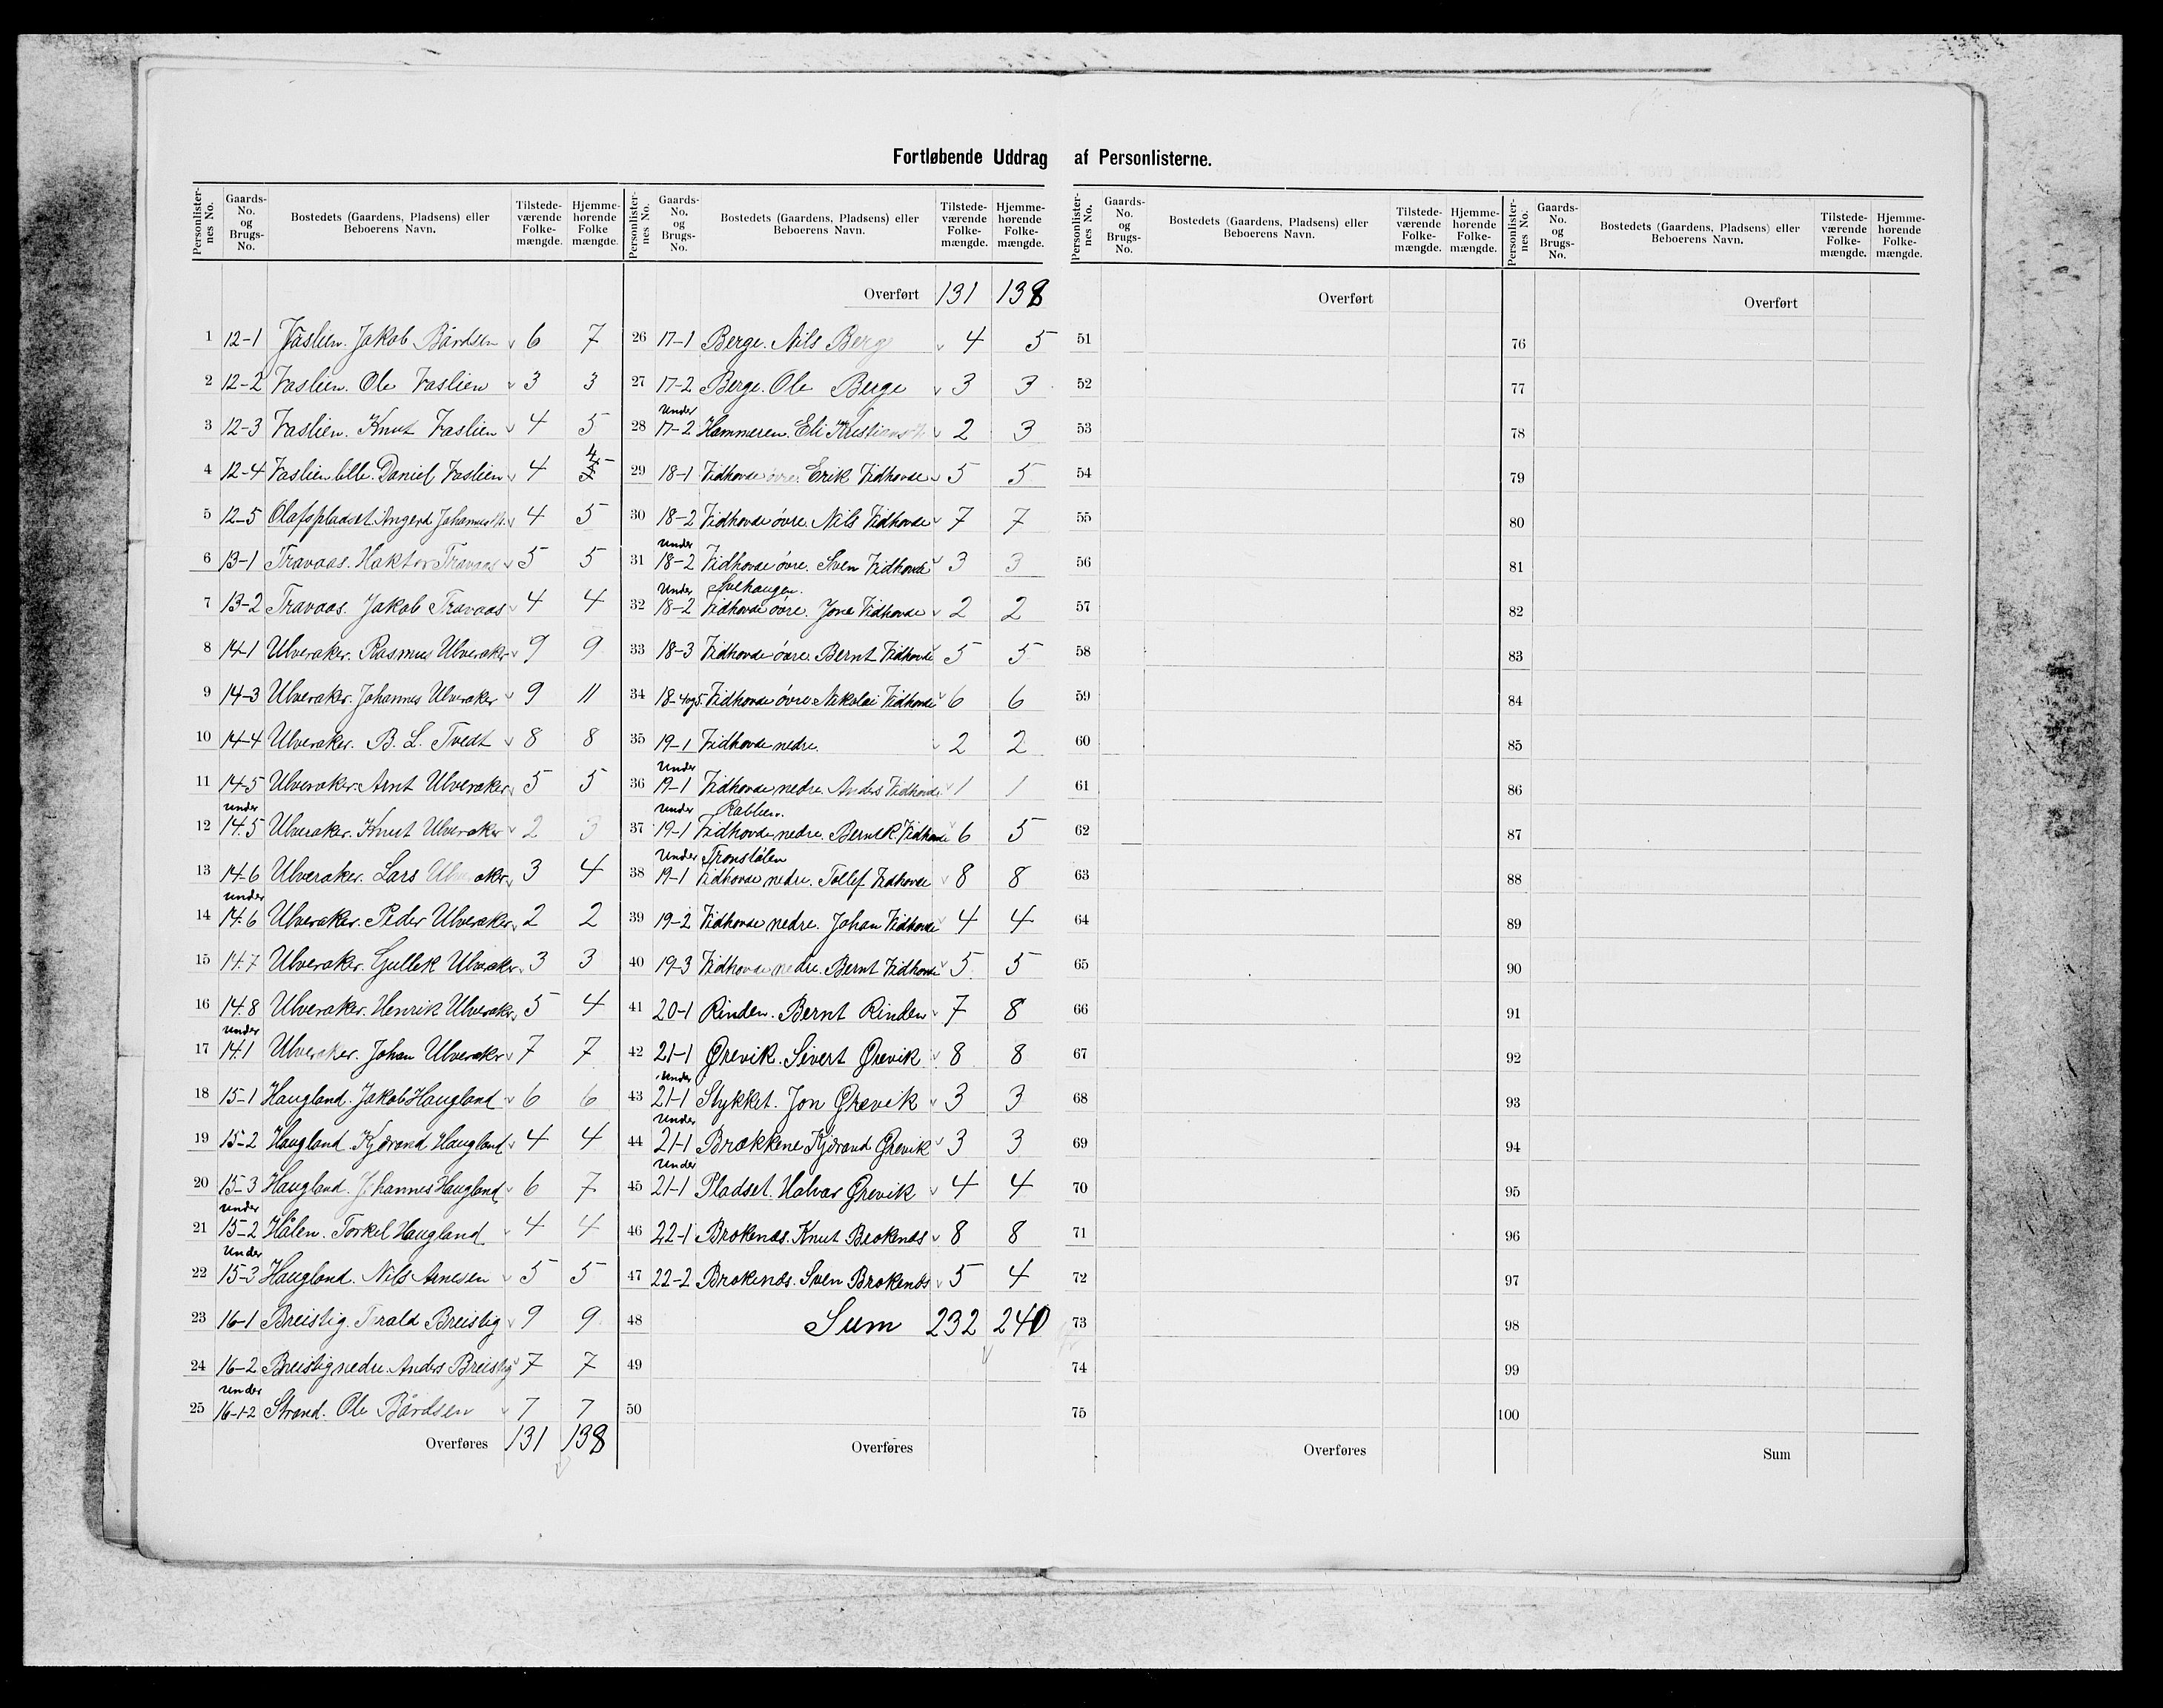 Fortløbende Uddrag af Personlisterne.
Personlister-nes No. | Gaards-No. og Brugs-No. | Bostedets (Gaardens, Pladsens) eller Beboerens Navn. | Tilstede-værende Folke-mængde. | Hjemme-hørende Folke mængde.
1 12-1 Jakob Bårdsen 6 7
2 12-2 Faslien. Ole Faslien 3 3
3 12-3 Faslien. Knut Faslien 4 5
4 12-4 Faslien lille. Daniel Faslien 4 4
5 12-5 Olafspladset. 4 5
6 13-1 Travaas. Travaas 5 5
7 13-2 Travaas. Jakob Travaas 4 4
8 14-1 Ulveraker. Rasmus Ulveraker 9 9
9 14-3 Ulveraker. Johannes Ulveraker 9 11
10 14-4 Ulveraker. B. L. Tvedt 8 8
11 14-5 Ulveraker. Arnt Ulveraker 5 5
12 under 14.5 Ulveraker. Knut Ulveraker 2 3
13 14-6 Ulveraker. Lars Ulveraker 3 4
14 under 14.6 Ulveraker. Peder Ulveraker 2 2
15 14.7 Ulveraker. Gullek Ulveraker 3 3
16 14.8 Ulveraker. Henrik Ulveraker 5 4
17 under 14.1 Ulveraker. Johan Ulveraker 7 7
18 15-1 Haugland. Jakob Haugland 6 6
19 15-2 Haugland. Kjærand Haugland 4 4
20 15-3 Haugland. Johannes Haugland 6 7
21 under 15-2 Hålen. Torkel Haugland 4 4
22 under 15-3 Haugland. Nils Arnesen 5 5
23 16-1 Breistig. Breistig 9 9
24 16-2 Breistig nedre. Anders Breistig 7 7
25 under 16-1-2 Strand. Ole Bårdsen 7 7
Overføres 131 138
Personlister-nes No. | Gaards-No. og Brugs-No. | Bostedets (Gaardens, Pladsens) eller Beboerens Navn. | Tilstede-værende Folke-mængde. | Hjemme-hørende Folke-mængde.
Overført 131 138
26 17-1 Berge. Nils Berge 4 5
27 17-2 Berge. Ole Berge 3 3
28 under 17-2 Hammeren. Eli 2 3
29 18-1 Vidhovde øvre. Erik Vidhovde 5 5
30 18-2 Vidhovde øvre. Nils Vidhovde 7 7
31 under 18-2 Vidhovde øvre. Sven Vidhovde 3 3
32 under 18-2 Vidhovde øvre. Jone Vidhovde 2 2
33 18-3 Vidhovde øvre. Bernt Vidhovde 5 5
34 18-4og5. Vidhovde øvre Nikolai Vidhovde 6 6
35 19-1 Vidhovde nedre. 2 2
36 under 19-1 Vidhovde nedre. Anders Vidhovde 1 1
37 under 19-1 Vidhovde nedre. Vidhovde 6 5
38 under Tronstølen 19-1 Vidhovde nedre. Tollef Vidhovde 8 8
39 19-2 Vidhovde nedre. Johan Vidhovde 4 4
40 19-3 Vidhovde nedre. Bernt Vidhovde 5 5
41 20-1 Rinden. Bernt Rinden 7 8
42 21-1 Ørevik. Sivert Ørevik 8 8
43 under 21-1 Stykket. Jon Ørevik 3 3
44 under 21-1 Brækkene Kjærand Ørevik 3 3
45 under 21-1 Pladset. Halvar Ørevik 4 4
46 22-1 Brokenæs. Knut Brokenæs 8 8
47 22-2 Brokenæs. Sven Brokenæs 5 4
48 Sum 232 240
49
50
Overføres
Personlister-nes No. | Gaards-No. og Brugs-No. | Bostedets (Gaardens, Pladsens) eller Beboerens Navn. | Tilstede-værende Folke-mængde. | Hjemme-hørende Folke-mængde.
Overført
51
52
53
54
55
56
57
58
59
60
61
62
63
64
65
66
67
68
69
70
71
72
73
74
75
Overføres
Personlister-nes No. | Gaards-No. og Brugs-No. | Bostedets (Gaardens, Pladsens) eller Beboerens Navn. | Tilstede-værende Folke-mængde. | Hjemme-hørende Folke-mængde.
Overført
76
77
78
79
80
81
82
83
84
85
86
87
88
89
90
91
92
93
94
95
96
97
98
99
100
Sum